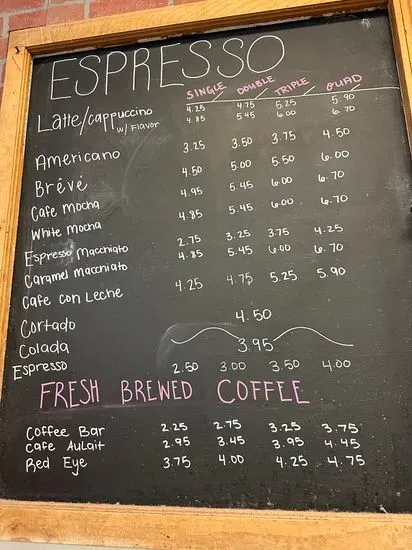 ESPRESSO
SINGLE / DOUBLE / TRIPLE / QUAD
Latte/cappuccino 4.25 4.75 5.25 5.90
w/ Flavor 4.85 5.45 6.00 6.70
Americano 3.25 3.50 3.75 4.50
Brévé 4.50 5.00 5.50 6.00
Cafe mocha 4.95 5.45 6.00 6.70
White mocha 4.85 5.45 6.00 6.70
Espresso Macchiato 2.75 3.25 3.75 4.25
Caramel macchiato 4.85 5.45 6.00 6.70
Cafe con Leche 4.25 4.75 5.25 5.90
Cortado 4.50
Colada 3.95
Espresso 2.50 3.00 3.50 4.00
FRESH BREWED COFFEE
Coffee Bar 2.25 2.75 3.25 3.75
Cafe AuLait 2.95 3.45 3.95 4.45
Red Eye 3.75 4.00 4.25 4.75